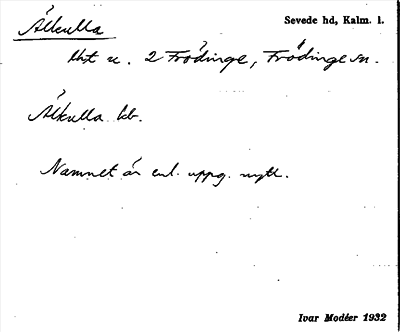 Älkulla
Sevede hd, Kalm. l.
lht u. 2 Frödinge, Frödinge sn.
Älkulla bb.
Namnet är enl. uppg. nytt.
Ivar Modéer 1932